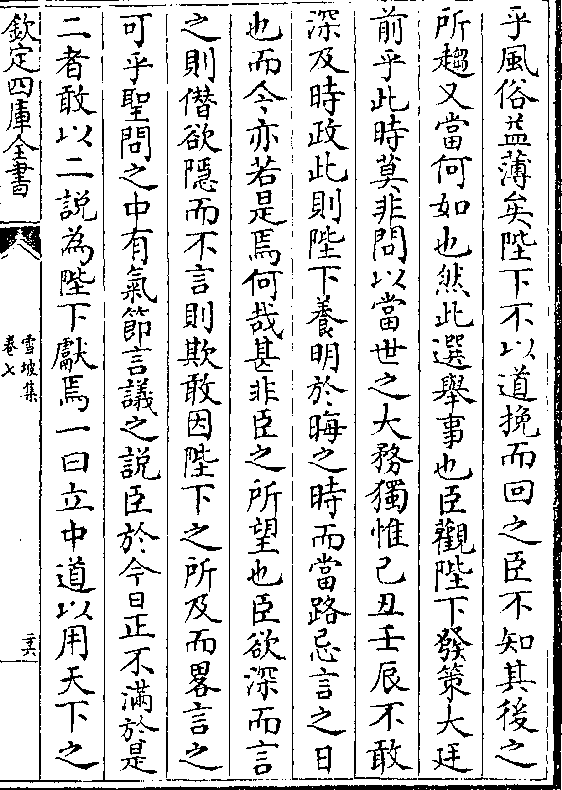 乎風俗益薄矣陛下不以道挽而回之臣不知其後之
所趨又當何如也然此選舉事也臣觀陛下發策大廷
前乎此時莫非問以當世之大務獨惟己丑壬辰不敢
深及時政此則陛下養明於晦之時而當路忌言之日
也而今亦若是焉何哉甚非臣之所望也臣欲深而言
之則僭欲隱而不言則欺敢因陛下之所及而畧言之
可乎聖問之中有氣節言議之說臣於今日正不滿於是
二者敢以二說為陛下獻焉一曰立中道以用天下之
欽定四庫全書
雪坡集
卷七
二六